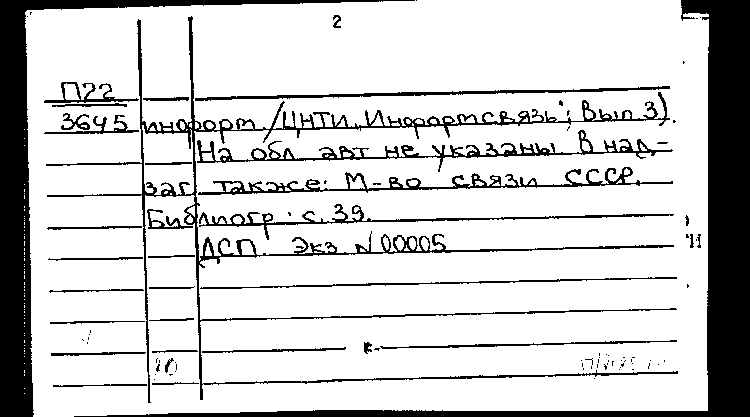 2
П22
3645 информ /ЦНТИ „Информсвязь"; Вып 3).
На обл авт не указаны В над-
заг также: М-во связи СССР.
Библиогр: с. 39.
ДСП Экз N 00005
к-
20